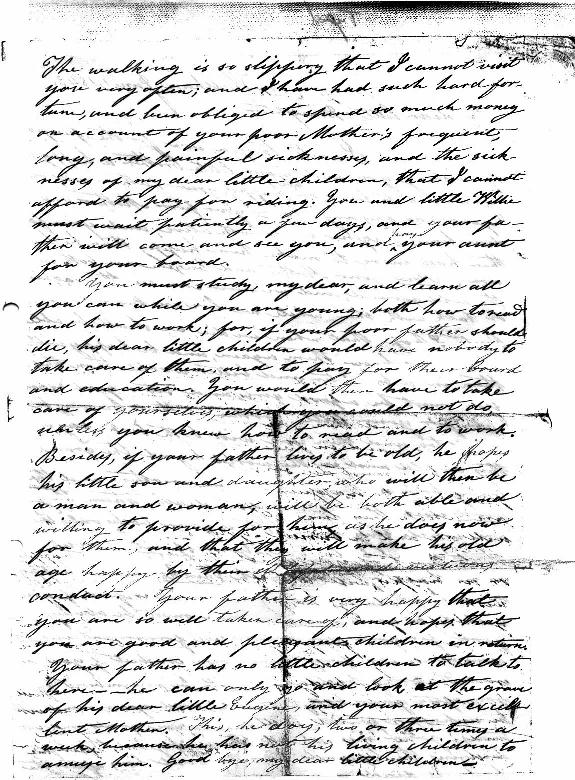 The walking is so slippery that I cannot visit
you very often; and I have had such hard for-
tune, and been obliged to spend so much money
on account of your poor Mother's frequent,
long, and painful sicknesses, and the sick-
nesses of my dear little children, that I cannot
afford to pay for riding. You and little Willie
must wait patiently a few days, and your fa-
ther will come and see you, and pay your aunt
for your board.
You must study, my dear, and learn all
you can while you are young; both how to read
and how to work; for, if your poor father should
die, his dear little children would have nobody to
take care of them, and to pay for their board
and education. You would then have to take
care of yourselves, which you could not do
unless you knew how to read and to work.
Besides, if your father lives to be old, he hopes
his little son and daughter, who will then be
a man and woman, will be both able and
willing to provide for him, as he does now
for them, and that they will make his old
age happy by their
conduct. Your father is very happy that
you are so well taken care of, and hopes that
you are good and pleasant children in return.
Your father has no little children to talk to
here — he can only go and look at the grave
of his dear little Eugene, and your most excel-
lent Mother. This, he does, two or three times a
week, because he has not his living children to
amuse him. Good bye, my dear little children.